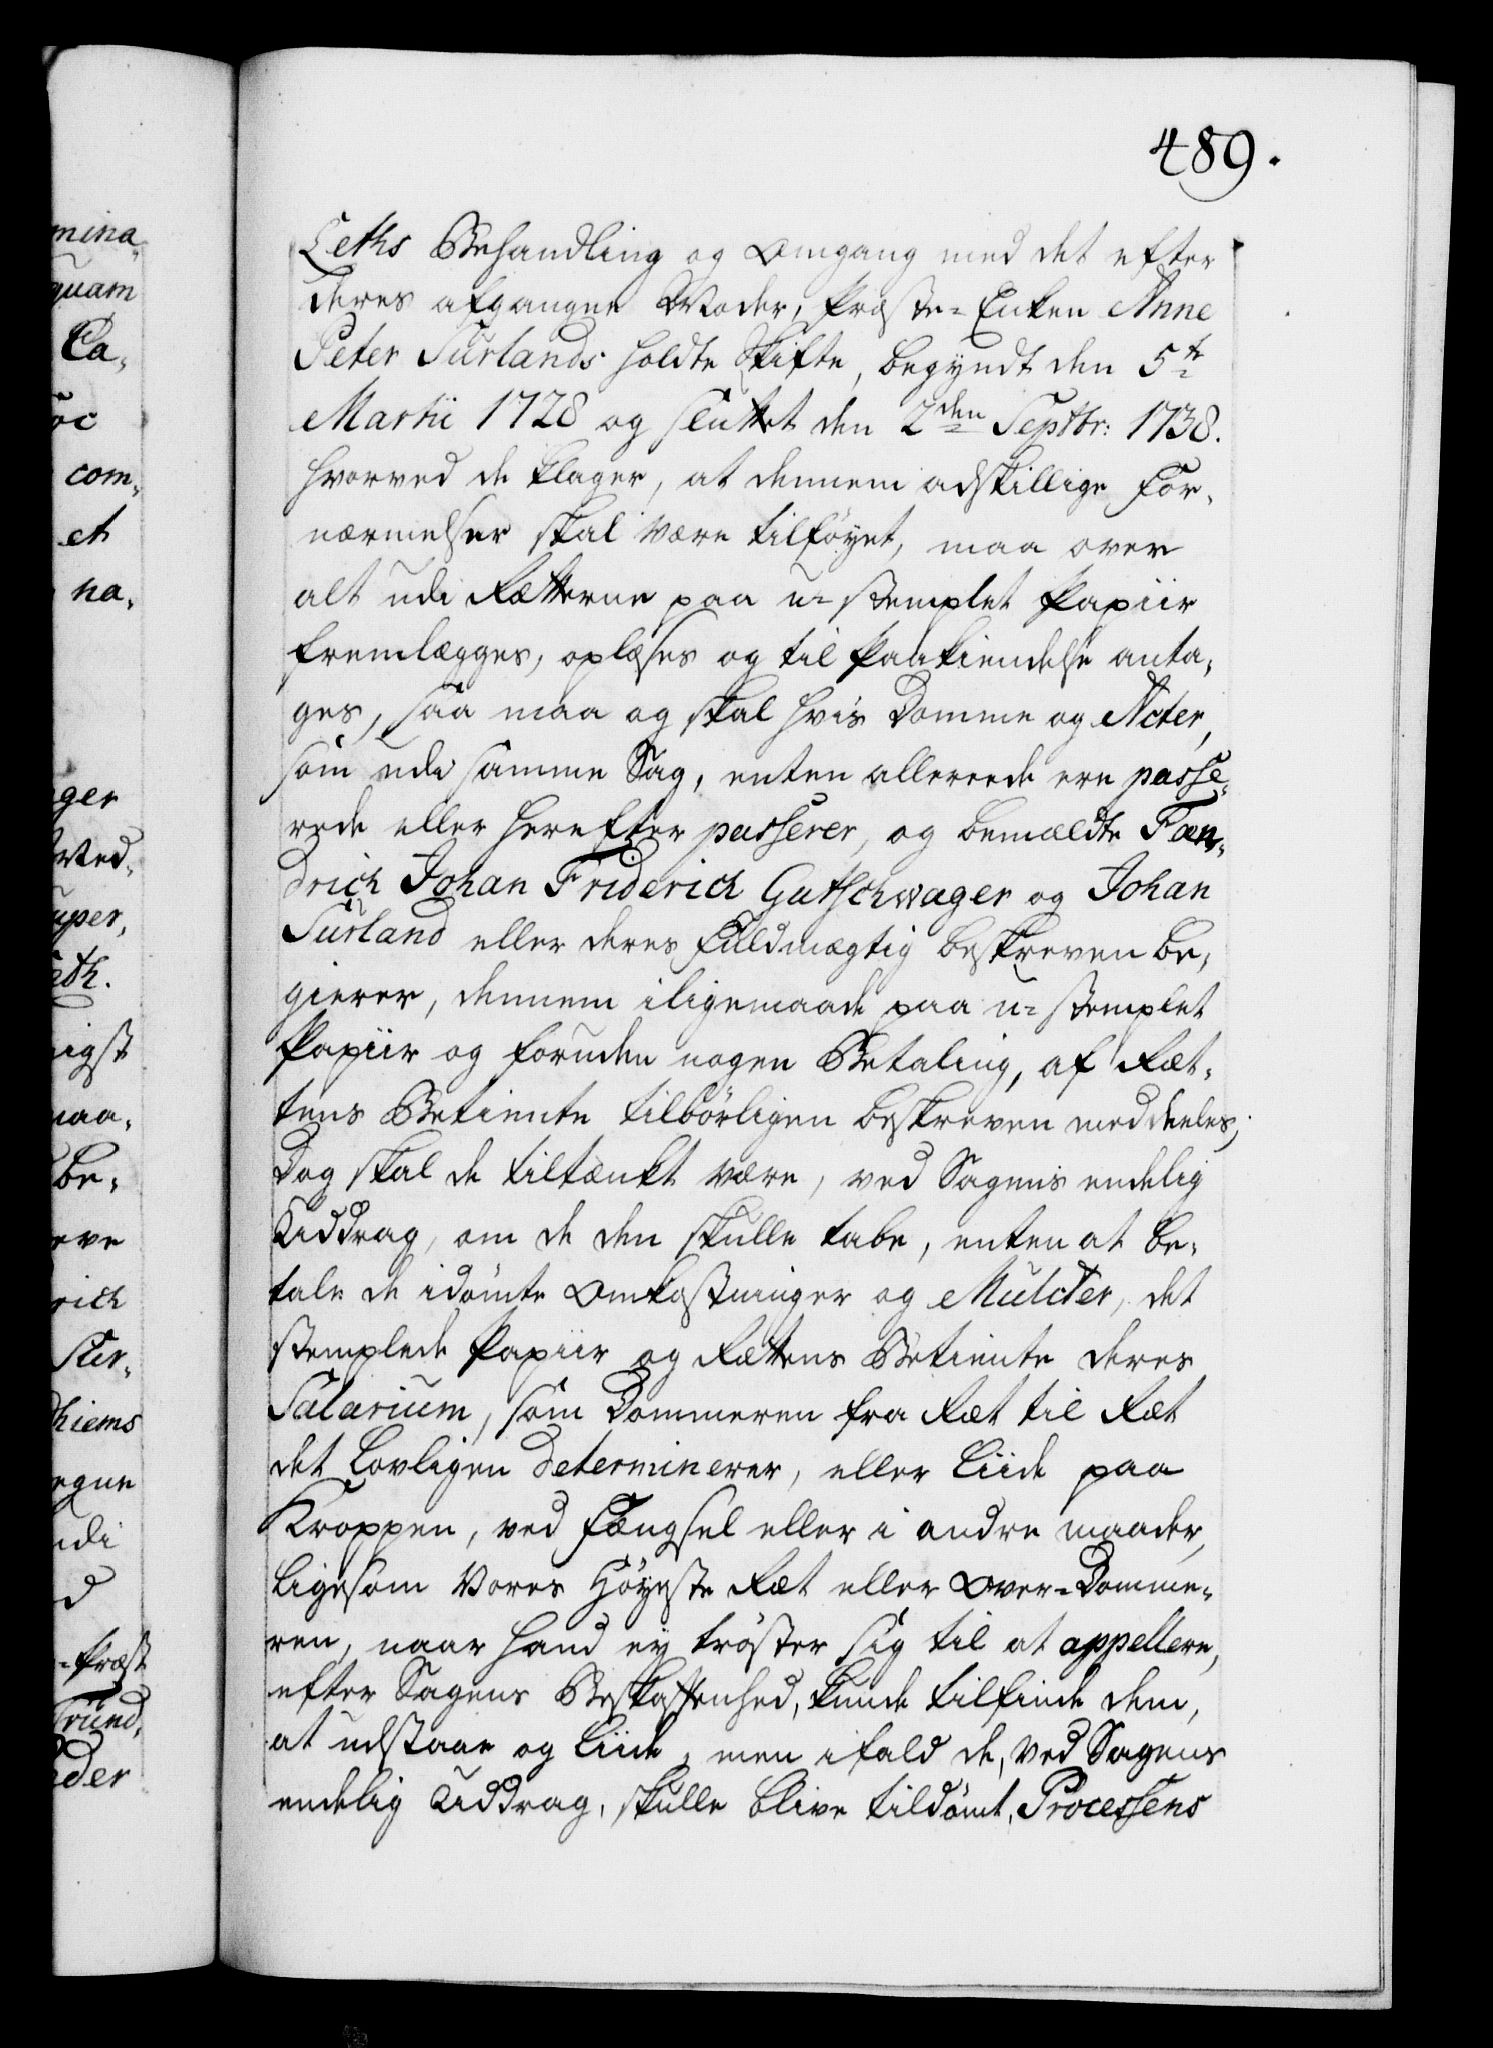 489.
mina-
quam
Ca-
oc
com-
et
na-
ger
Wed-
super,
eth.
igst
maa-
be-
eve
rich
Sur-
hiems
egne
udi
d
-Præst
Trund-
der
Leths Behandling og Omgang med det efter
deres afgangne Moder, Præste-Enken Anne
Peter Surlands holdte Skifte, begyndt den 5te
Martii 1728 og sluttet den 2den Septbr: 1738.
hvorved de klager, at dennem adskillige For-
nærmelser skal være tilføyet, maa over
alt udi Rætterne paa u-stemplet Papiir
fremlægges, oplæses og til Paakiendelse anta-
ges, saa maa og skal hvis Domme og Acter,
som udi samme Sag, enten allereede ere passe-
rede eller herefter passerer, og bemældte Fæn-
drich Johan Friderich Gutschwager og Johan
Surland eller deres Fuldmægtig beskreven be-
gierer, dennem iligemaade paa u-stemplet
Papiir og foruden nogen Betaling, af Ræt-
tens Betiente tilbørligen beskreven meddeeles;
Dog skal de tiltænkt være, ved Sagens endelig
Uddrag, om de den skulle tabe, enten at be-
tale de idømte Omkostninger og Mulcter, det
stemplede Papiir og Rættens Betiente deres
Salarium, som Dommeren fra Ræt til Ræt
det Lovligen determinerer, eller Liide paa
Kroppen, ved Fængsel eller i andre maader,
ligesom Vores Høyeste Ræt eller Over-Domme-
ren, naar hand ey trøster sig til at appellere,
efter Sagens Beskaffenhed, kunde tilfinde dem,
at udstaae og Liide, men ifald de, ved Sagens
endelig Uddrag, skulle blive tildømt, Processens